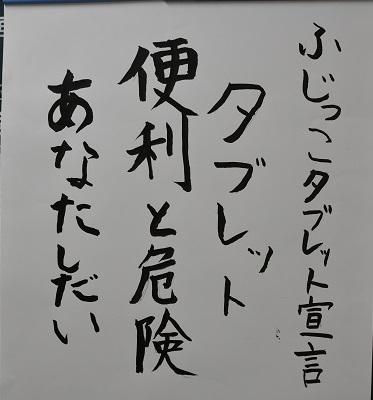 ふじっこタブレット宣言
タブレット
便利と危険
あなたしだい